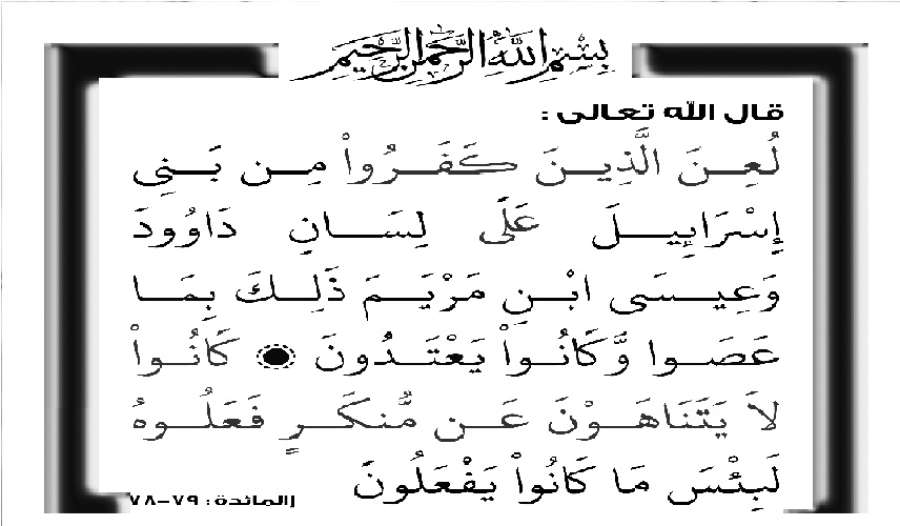 بِسْمِ اللَّهِ الرَّحْمَنِ الرَّحِيمِ
قال الله تعالى :
لُعِنَ الَّذِينَ كَفَرُواْ مِن بَنِى
إِسْرَائِيلَ عَلَى لِسَانِ دَاوُودَ
وَعِيسَى ابْنِ مَرْيَمَ ذَلِكَ بِمَا
عَصَوا وَّكَانُواْ يَعْتَدُونَ ۝ كَانُواْ
لاَ يَتَنَاهَوْنَ عَن مُّنكَرٍ فَعَلُوهُ
لَبِئْسَ مَا كَانُواْ يَفْعَلُونَ
المائدة : ٧٩-٧٨